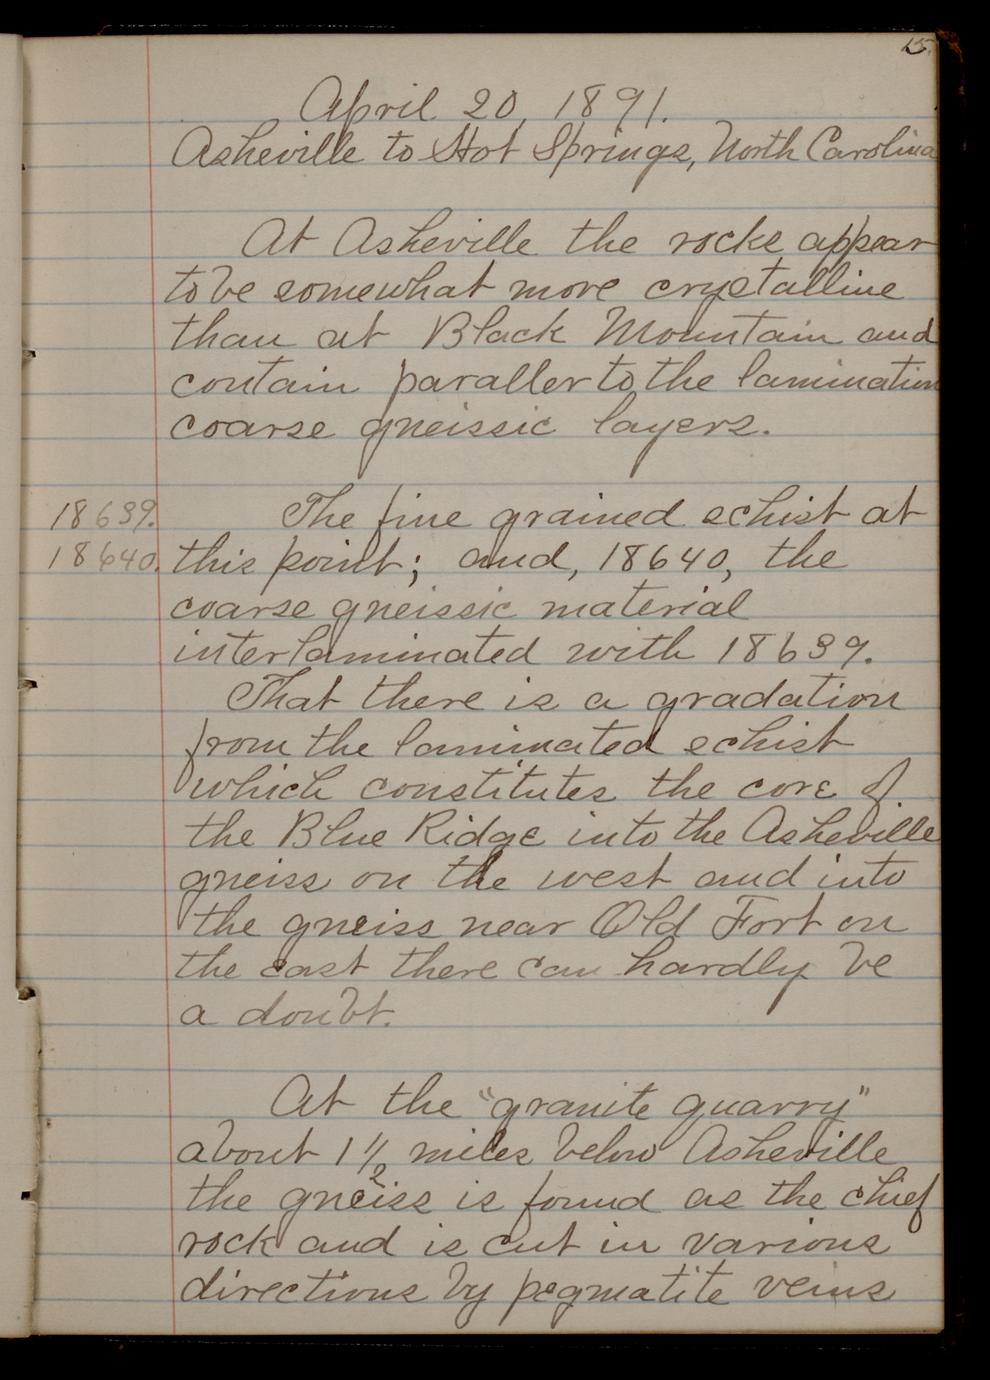 15.
April 20, 1891.
Asheville to Hot Springs, North Carolina
At Asheville the rocks appear
to be somewhat more crystalline
than at Black Mountain and
contain parallel to the lamination
coarse gneissic layers.
18639. The fine grained schist at
18640. this point; and, 18640, the
coarse gneissic material
interlaminated with 18639.
That there is a gradation
from the laminated schist
which constitutes the core of
the Blue Ridge into the Asheville
gneiss on the west and into
the gneiss near Old Fort on
the east there can hardly be
a doubt.
At the "granite quarry"
about 1 1/2 miles below Asheville
the gneiss is found as the chief
rock and is cut in various
directions by pegmatite veins